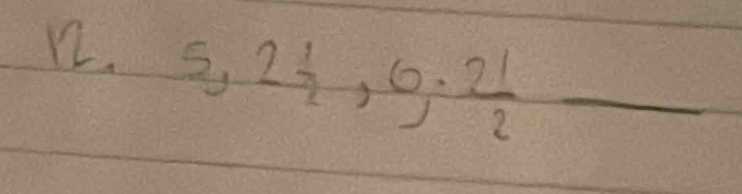 12. 5, 2 1/2, 0, . 2 1/2 ___